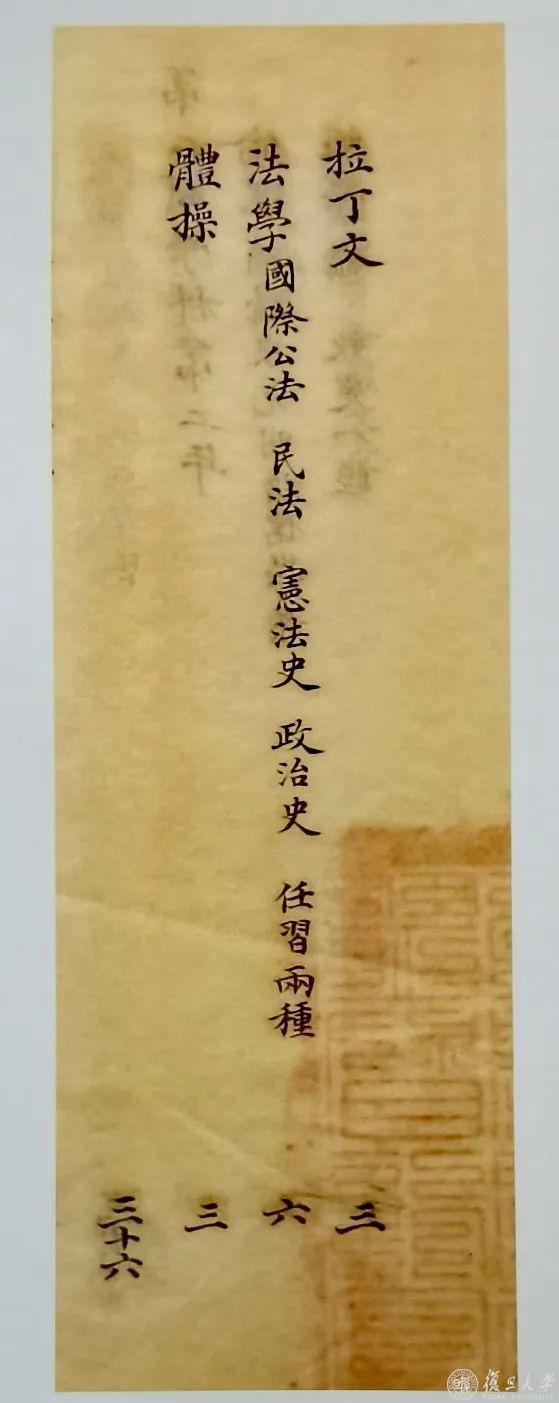 拉丁文 三
法學國際公法 民法 憲法史 政治史 任習兩種 六
體操 三
三十六
復旦大學
FUDAN UNIVERSITY